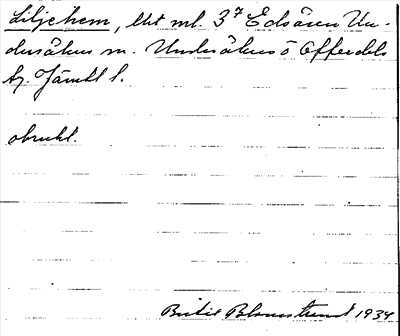 Liljehem, lht ml. 3⁷ Edsåsen Un-
dersåkers sn. Undersåkers o Offerdals
tg. Jämtl l.
obruhl.
Britit Blomstrand 1934